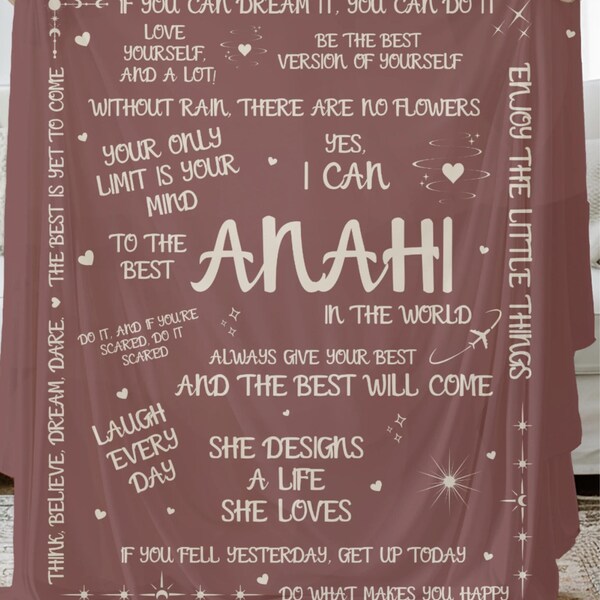 IF YOU CAN DREAM IT, YOU CAN DO IT
LOVE
YOURSELF,
AND A LOT!
BE THE BEST
VERSION OF YOURSELF
WITHOUT RAIN, THERE ARE NO FLOWERS
YOUR ONLY
LIMIT IS YOUR
MIND
YES,
I CAN
TO THE
BEST
ANAHI
IN THE WORLD
DO IT, AND IF YOU'RE
SCARED, DO IT
SCARED
ALWAYS GIVE YOUR BEST
AND THE BEST WILL COME
LAUGH
EVERY
DAY
SHE DESIGNS
A LIFE
SHE LOVES
IF YOU FELL YESTERDAY, GET UP TODAY
DO WHAT MAKES YOU HAPPY
THINK, BELIEVE, DREAM, DARE. THE BEST IS YET TO COME
ENJOY THE LITTLE THINGS